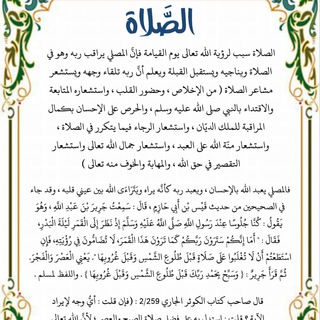 الصَّلاة
الصلاة سبب لرؤية الله تعالى يوم القيامة فإنَّ المصلي يراقب ربه وهو في
الصلاة ويناجيه ويستقبل القبلة ويعلم أنَّ ربه تلقاء وجهه ويستشعر
مشاعر الصلاة ( من الإخلاص ، وحضور القلب ، واستشعاره المتابعة
والاقتداء بالنبي صلى الله عليه وسلم ، والحرص على الإحسان بكمال
المراقبة للملك الديّان ، واستشعار الرجاء فيما يتكرر في الصلاة ،
واستشعار منّة الله على العبد ، واستشعار جمال الله تعالى واستشعار
التقصير في حق الله ، والمهابة والخوف منه تعالى )
فالمصلي يعبد الله بالإحسان ، ويعبد ربه كأنَّه يراه ويَتَرَاءَى الله بين عيني قلبه ، وقد جاء
في الصحيحين من حديث قَيْس بْن أَبِي حَازِمٍ ، قَالَ : سَمِعْتُ جَرِيرَ بْنَ عَبْدِ اللَّهِ ، وَهُوَ
يَقُولُ : كُنَّا جُلُوسًا عِنْدَ رَسُولِ اللَّهِ صَلَّى اللَّهُ عَلَيْهِ وَسَلَّمَ إِذْ نَظَرَ إِلَى الْقَمَرِ لَيْلَةَ الْبَدْرِ،
فَقَالَ : " أَمَا إِنَّكُمْ سَتَرَوْنَ رَبَّكُمْ كَمَا تَرَوْنَ هَذَا الْقَمَرَ، لَا تُضَامُّونَ فِي رُؤْيَتِهِ، فَإِنِ
اسْتَطَعْتُمْ أَنْ لَا تُغْلَبُوا عَلَى صَلَاةٍ قَبْلَ طُلُوعِ الشَّمْسِ وَقَبْلَ غُرُوبِهَا ". يَعْنِي الْعَصْرَ وَالْفَجْرَ.
ثُمَّ قَرَأَ جَرِيرٌ : { وَسَبِّحْ بِحَمْدِ رَبِّكَ قَبْلَ طُلُوعِ الشَّمْسِ وَقَبْلَ غُرُوبِهَا } . واللفظ لمسلم .
قال صاحب كتاب الكوثر الجاري 2/259 : (فإن قلت : أيُّ وجه لإيراد